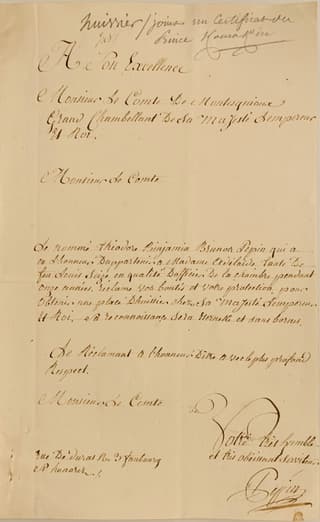 huissier / joint un certificat du
Prince
A Son Excellence
Monsieur Le Comte De Montesquiou
Grand Chambellant De Sa Majesté Lempereur
Et Roi.
Monsieur Le Comte
Le nommé Théodore Binjamin Brunot Pepin qui a
eu Lhonneur Dappartenir a Madame Tante De
feu Louis Seize en qualité Dofficier De la chambre, pendant
onze années, Réclame vos bontés et votre protection, pour
obtenir une place Dhuissier chez Sa Majesté Lempereur
Et Roi, Sa reconnaissance Sera Eternelle et Sans bornes.
Le Réclamant a Lhonneur Dêtre avec le plus profond
Respect.
Monsieur Le Comte
Votre très humble
et très obéissant serviteur
Pepin
rue De Duras No 3 faubourg
St honoré